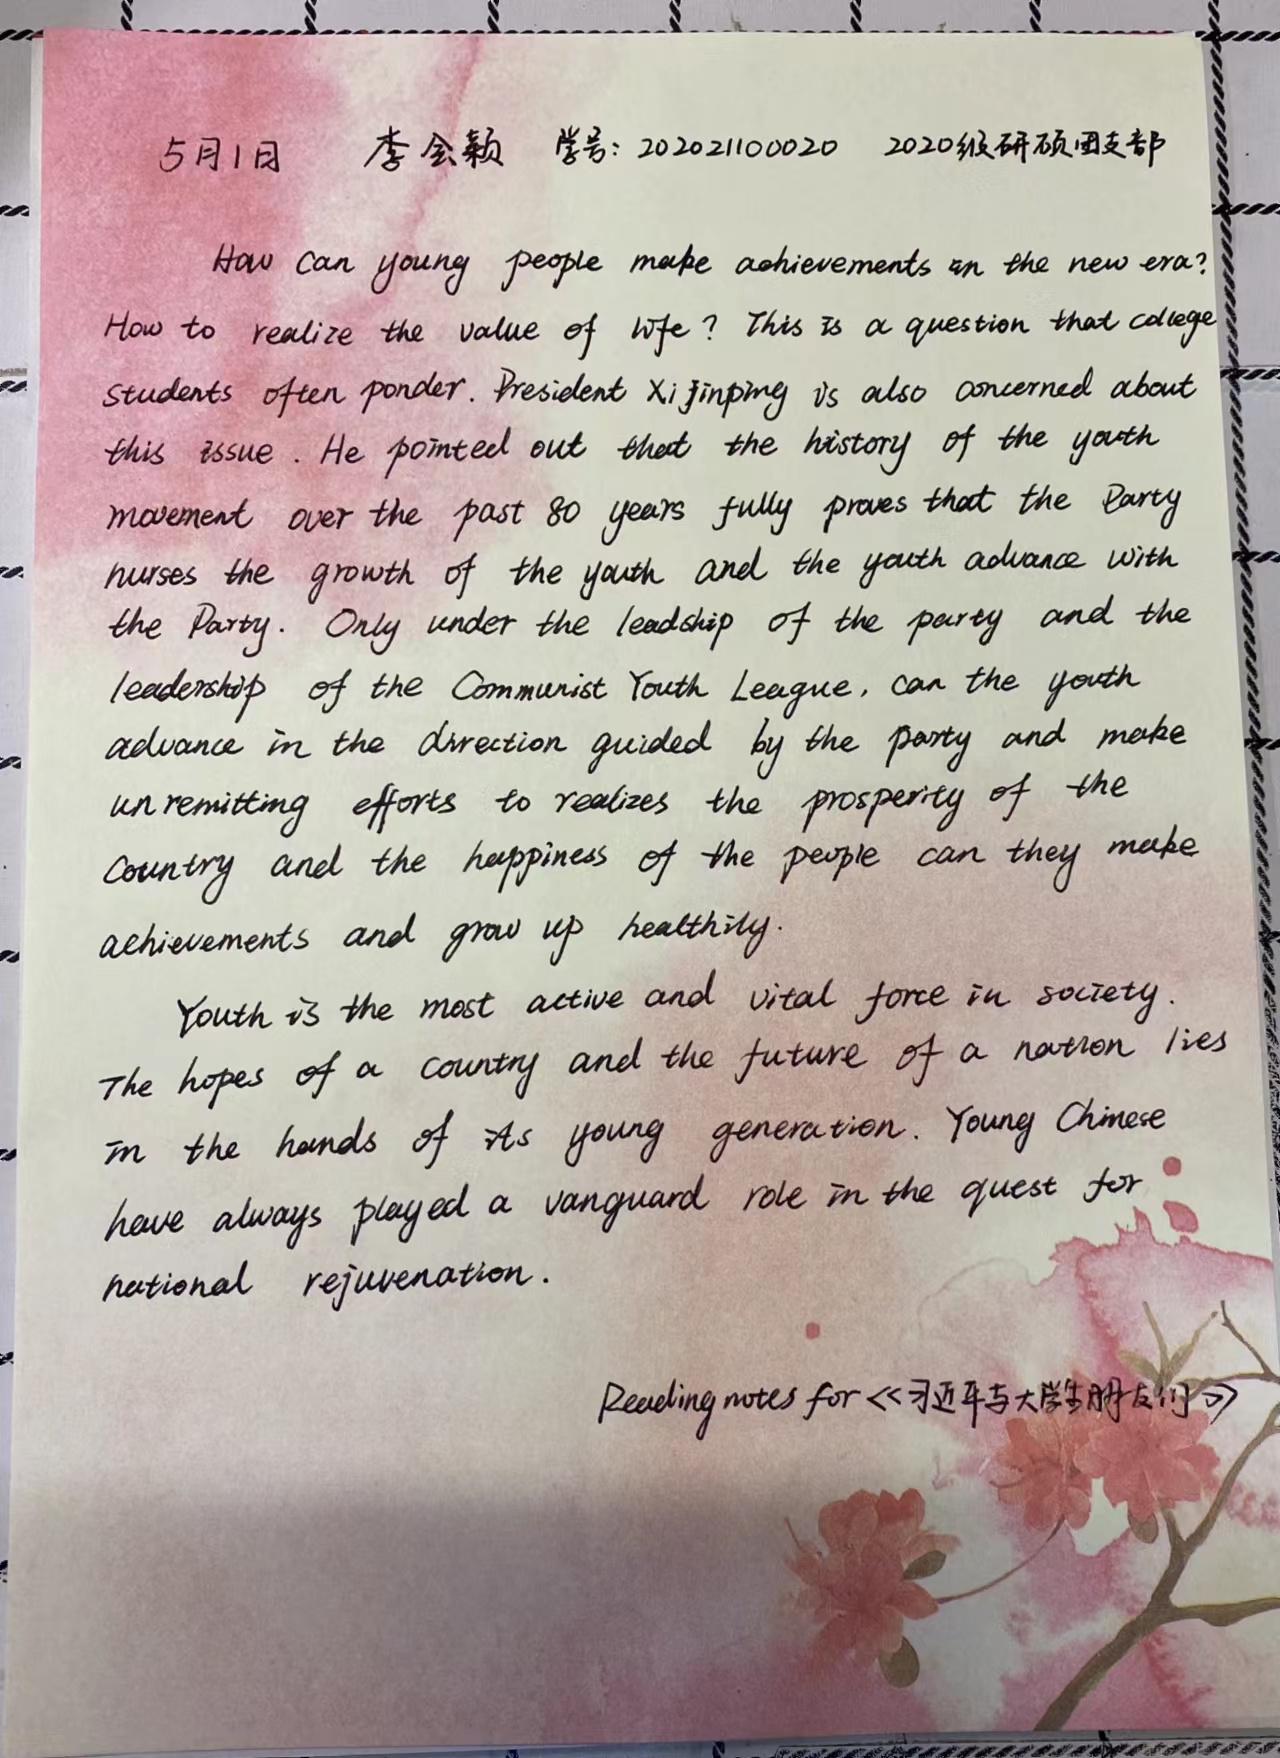 5月1日 李会颖 学号: 202021100020 2020级研硕团支部
How can young people make achievements in the new era?
How to realize the value of life? This is a question that college
students often ponder. President Xi Jinping is also concerned about
this issue. He pointed out that the history of the youth
movement over the past 80 years fully proves that the Party
nurses the growth of the youth and the youth advance with
the Party. Only under the leadship of the party and the
leadership of the Communist Youth League, can the youth
advance in the direction guided by the party and make
unremitting efforts to realizes the prosperity of the
Country and the happiness of the people can they make
achievements and grow up healthily.
Youth is the most active and vital force in society.
The hopes of a country and the future of a nation lies
in the hands of its young generation. Young Chinese
have always played a vanguard role in the quest for
national rejuvenation.
Reading notes for <<习近平与大学生朋友们>>